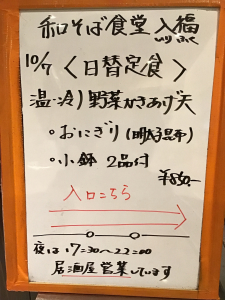 和そば食堂 入福
いりふく
10/7 〈日替定食〉
温・冷）野菜かきあげ天
・おにぎり（明太昆布）
・小鉢 2品付
¥850.-
入口こちら
夜は17:30〜22:00
居酒屋営業しています